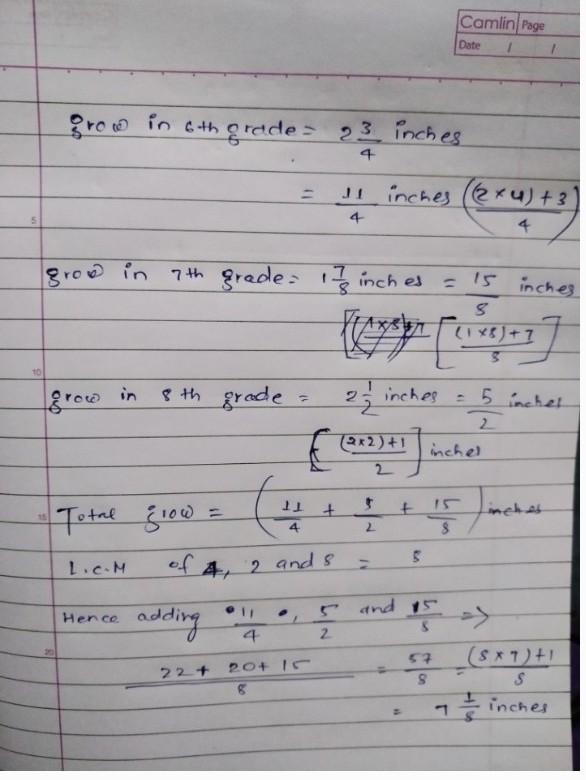 Camlin Page
Date / /
grow in 6th grade = 2 3/4 inches
= 11/4 inches ((2×4)+3)/4
5
grow in 7th grade = 1 7/8 inches = 15/8 inches
[((1×8)+7)/8]
10
grow in 8th grade = 2 1/2 inches = 5/2 inches
[((2×2)+1)/2] inches
15
Total grow = (11/4 + 5/2 + 15/8) inches
L.C.M of 4, 2 and 8 = 8
Hence adding 11/4, 5/2 and 15/8 =>
20
(22 + 20 + 15)/8 = 57/8 = ((8×7)+1)/8
= 7 1/8 inches